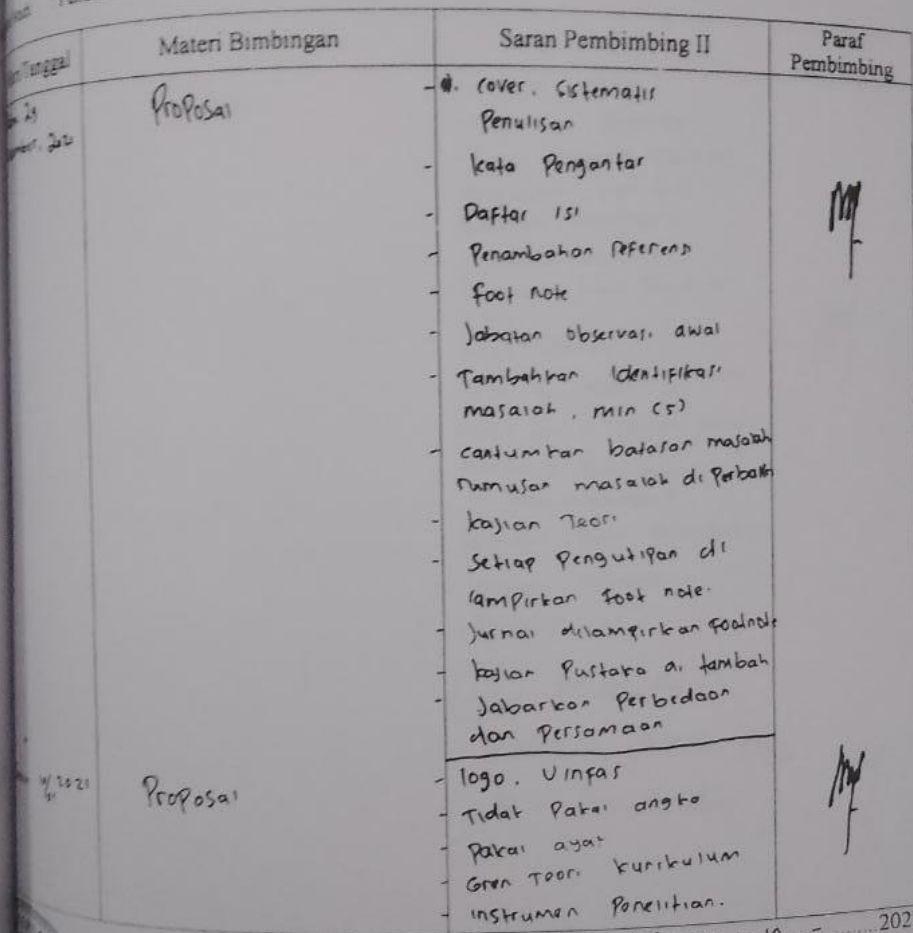 Materi Bimbingan
Saran Pembimbing II
Paraf
Pembimbing
Tanggal
Proposal
- cover. Sistematis
Penulisan
- kata Pengantar
- Daftar isi
- Penambahan referensi
- foot note
- Jabatan observasi awal
- Tambahkan identifikasi
masalah, min (5)
- cantumkan batasan masalah
rumusan masalah di Perbaiki
- kajian Teori
- Setiap Pengutipan di
lampirkan foot note.
- Jurnal dilampirkan Footnote
- kajian Pustaka di tambah
- Jabarkan Perbedaan
dan Persamaan
2021
Proposal
- logo. Uinfas
- Tidak Pakai angka
- Pakai ayat
- Gren Teori kurikulum
- instrumen Penelitian.
202